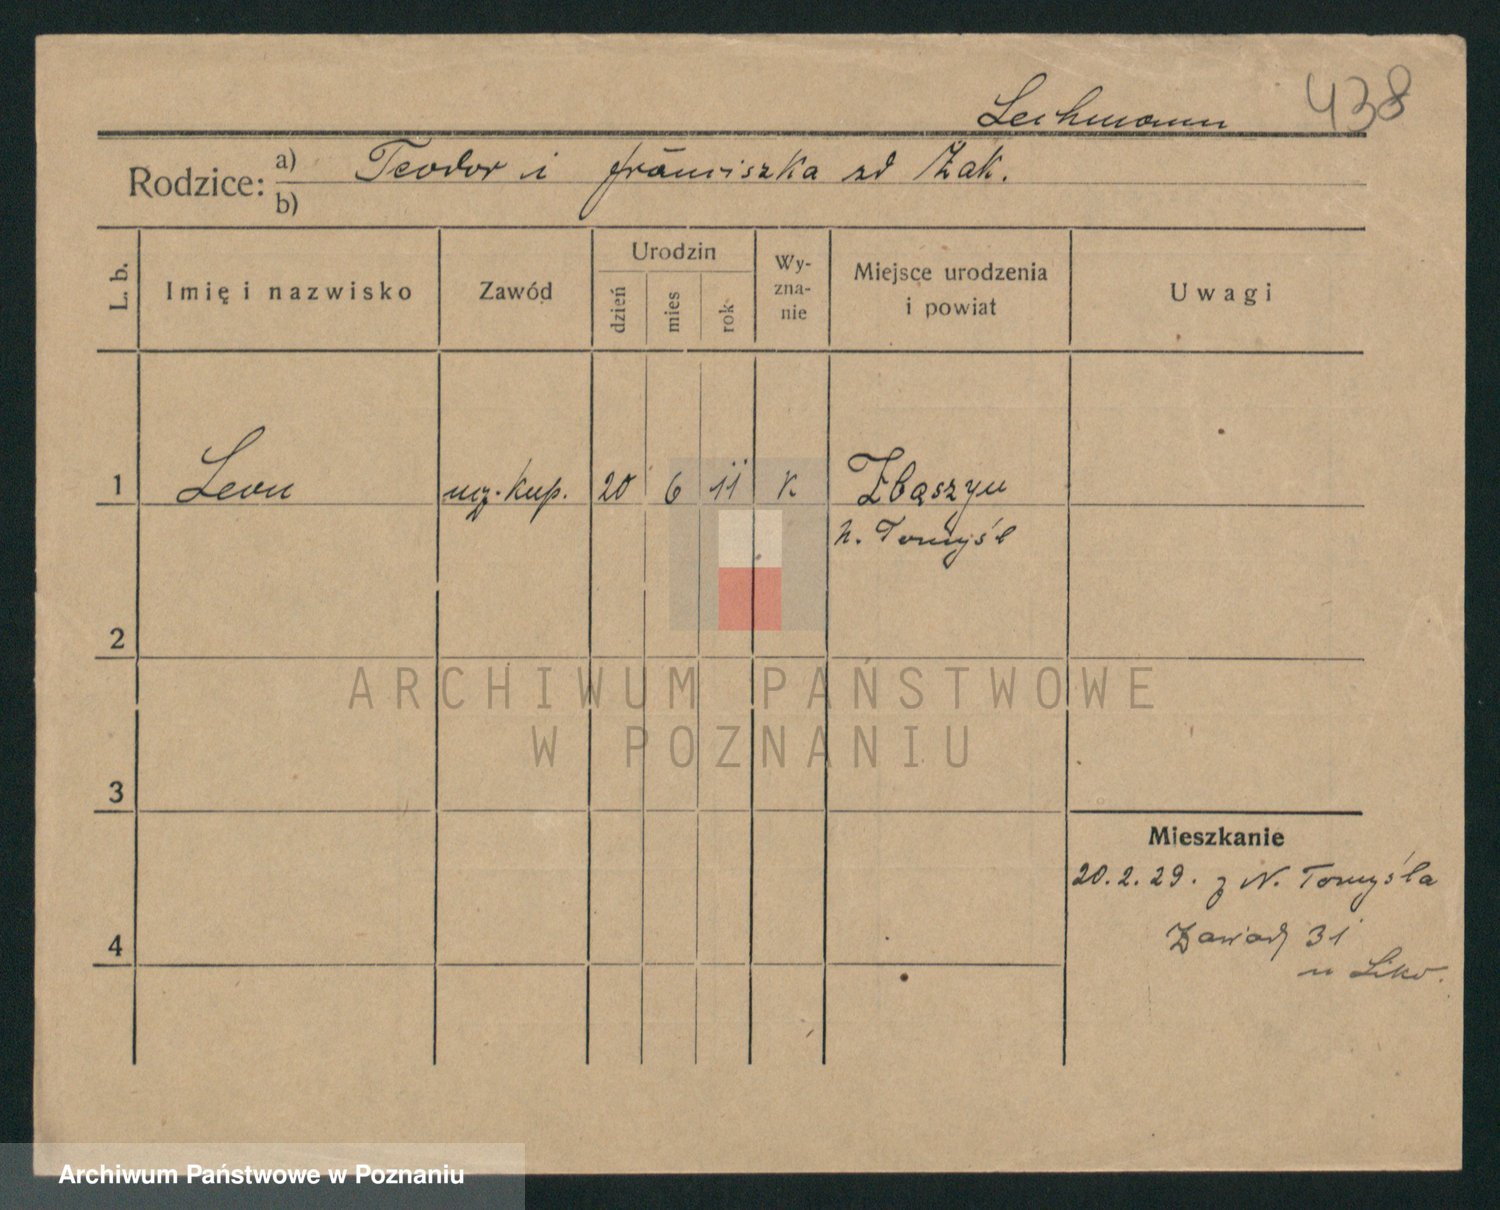 438
Lechmann
Rodzice: a) Teodor i Franciszka zd Żak.
b)
L. b.
Imię i nazwisko
Zawód
Urodzin
dzień
mies
rok
Wy-
zna-
nie
Miejsce urodzenia
i powiat
Uwagi
1 Leon ucz. kup. 20 6 11 K Zbąszyn
N. Tomyśl
2
3
4
Mieszkanie
20.2.29. z N. Tomyśla
Zawady 31
u
ARCHIWUM PAŃSTWOWE
W POZNANIU
Archiwum Państwowe w Poznaniu